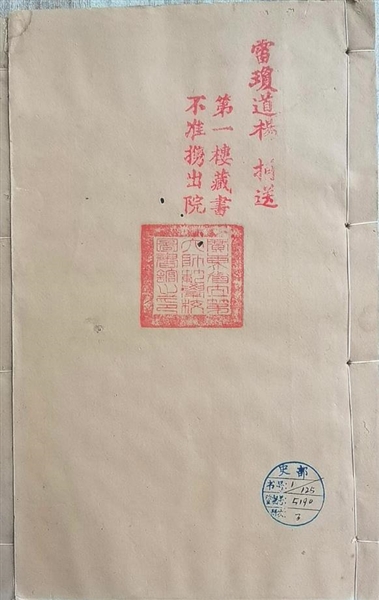 雷瓊道楊 捐送
第一樓藏書
不准携出院
廣東省立第
六師範學校
圖書館之印
史部
书号: 1/125
5190